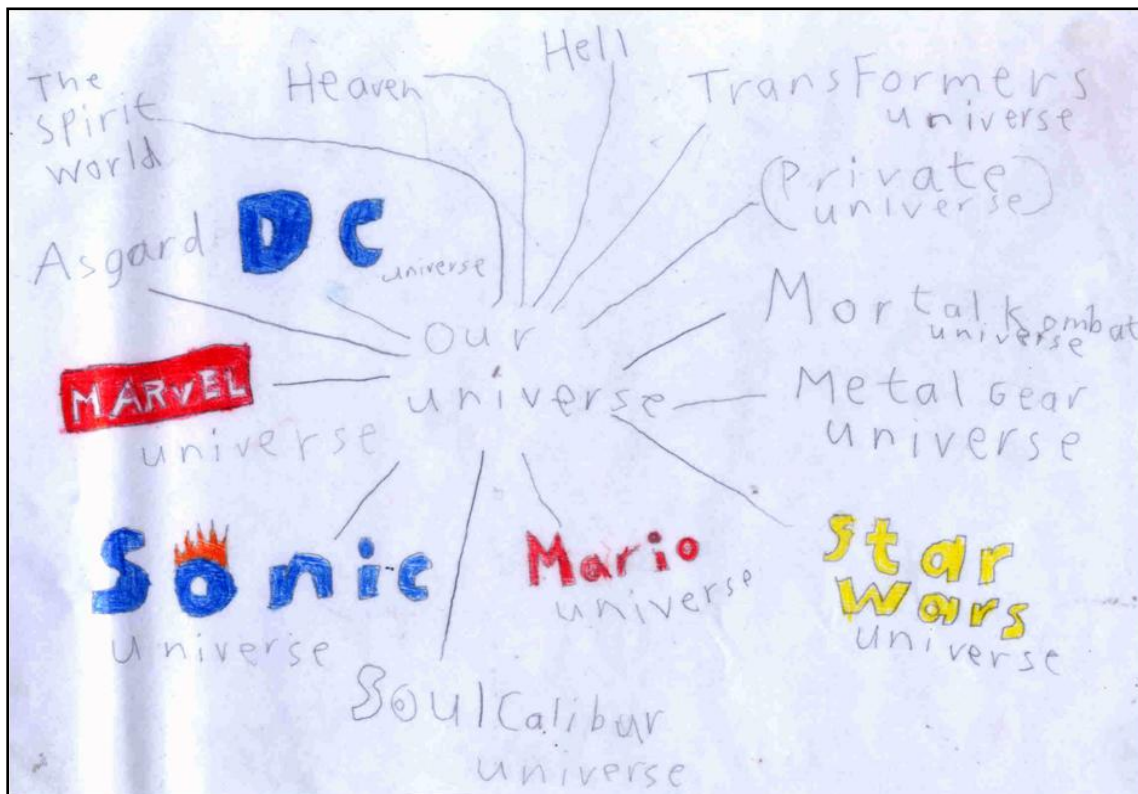 The
spirit
world
Heaven
Hell
Transformers
universe
(Private
universe)
Asgard
DC
universe
Our
universe
Mortal Kombat
universe
MARVEL
universe
Metal Gear
universe
Sonic
universe
Mario
universe
Star
Wars
universe
Soul Calibur
universe